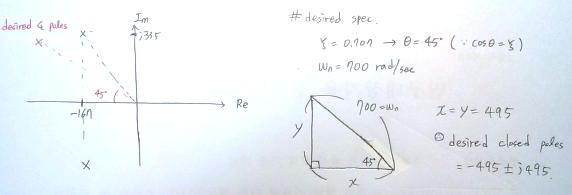 Im
desired c.l poles
j335
45°
Re
-167
# desired spec.
ζ = 0.707 → θ = 45° (∵ cosθ = ζ)
ωn = 700 rad/sec
700 = ωn
y
45°
x
x = y = 495
desired closed poles
= -495 ± j495.